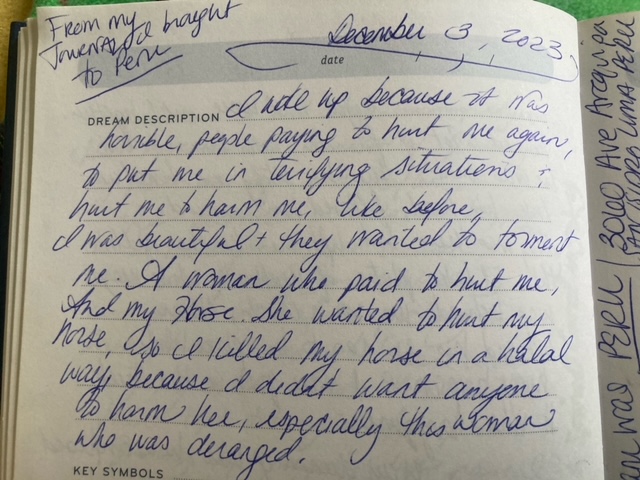 From my
Journal I'd brought
to Peru
December 3, 2023
date
DREAM DESCRIPTION I woke up because it was
horrible, people paying to hurt me again,
to put me in terrifying situations +
hurt me to harm me, like before.
I was beautiful + they wanted to torment
me. A woman who paid to hurt me,
And my Horse. She wanted to hurt my
horse, so I killed my horse in a halal
way, because I didn't want anyone
to harm her, especially this woman
who was deranged.
KEY SYMBOLS
was PERU | 3000 Ave Arequipa
LIMA PERU